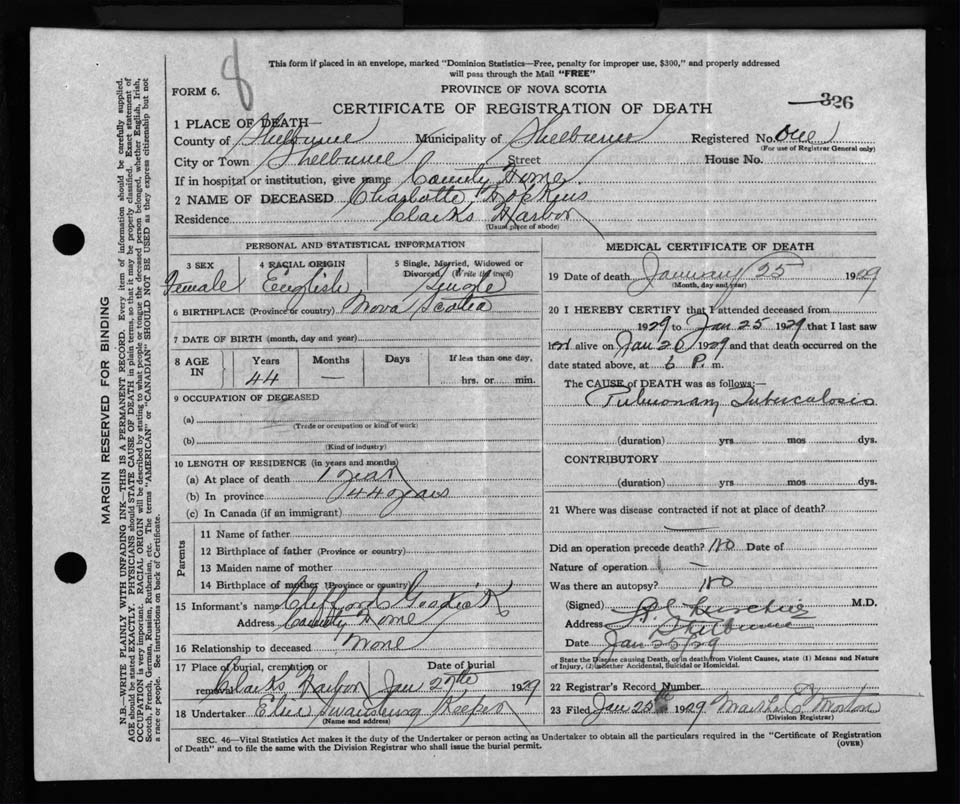 8
This form if placed in an envelope, marked "Dominion Statistics—Free, penalty for improper use, $300," and properly addressed
will pass through the Mail "FREE"
FORM 6.
PROVINCE OF NOVA SCOTIA
CERTIFICATE OF REGISTRATION OF DEATH
326
1 PLACE OF DEATH—
County of Shelburne Municipality of Shelburne Registered No. One
(For use of Registrar General only)
City or Town Shelburne Street House No.
If in hospital or institution, give name County Home.
2 NAME OF DECEASED Charlotte Hopkins
Residence Clarks Harbor
(Usual place of abode)
PERSONAL AND STATISTICAL INFORMATION
3 SEX 4 RACIAL ORIGIN 5 Single, Married, Widowed or
Divorced (Write the word)
Female English Single
6 BIRTHPLACE (Province or country) Nova Scotia
7 DATE OF BIRTH (month, day and year)
8 AGE IN Years Months Days If less than one day,
44 — hrs. or min.
9 OCCUPATION OF DECEASED
(a)
(Trade or occupation or kind of work)
(b)
(Kind of industry)
10 LENGTH OF RESIDENCE (in years and months)
(a) At place of death 1 year
(b) In province 44 years
(c) In Canada (if an immigrant)
Parents
11 Name of father
12 Birthplace of father (Province or country)
13 Maiden name of mother
14 Birthplace of mother (Province or country)
15 Informant's name Clifford Goodick
Address County Home
16 Relationship to deceased None
17 Place of burial, cremation or
removal Date of burial
Clarks Harbor Jan 27th 1929
18 Undertaker Keeper
(Name and address)
MEDICAL CERTIFICATE OF DEATH
19 Date of death January 25 1929
(Month, day and year)
20 I HEREBY CERTIFY that I attended deceased from
1929 to Jan 25 1929 that I last saw
alive on Jan 20 1929 and that death occurred on the
date stated above, at 6 P. m.
The CAUSE OF DEATH was as follows:—
Pulmonary Tuberculosis
(duration) yrs mos dys.
CONTRIBUTORY
(duration) yrs mos dys.
21 Where was disease contracted if not at place of death?
—
Did an operation precede death? No Date of
Nature of operation —
Was there an autopsy? No
(Signed) M.D.
Address Shelburne
Date Jan 25/29
State the Disease causing Death, or in death from Violent Causes, state (1) Means and Nature
of Injury, (2) whether Accidental, Suicidal or Homicidal.
22 Registrar's Record Number
23 Filed Jan 25 1929 Martha E. Morton
(Division Registrar)
SEC. 46—Vital Statistics Act makes it the duty of the Undertaker or person acting as Undertaker to obtain all the particulars required in the "Certificate of Registration
of Death" and to file the same with the Division Registrar who shall issue the burial permit.
(OVER)
MARGIN RESERVED FOR BINDING
N.B.—WRITE PLAINLY WITH UNFADING INK—THIS IS A PERMANENT RECORD. Every item of information should be carefully supplied.
AGE should be stated EXACTLY. PHYSICIANS should STATE CAUSE OF DEATH in plain terms, so that it may be properly classified. Exact statement of
OCCUPATION is very important. RACIAL ORIGIN will be described by stating to what people or tongue the deceased person belonged, whether English, Irish,
Scotch, French, German, Russian, Ruthenian, etc. The terms "AMERICAN" or "CANADIAN" SHOULD NOT BE USED as they express citizenship but not
a race or people. See instructions on back of Certificate.